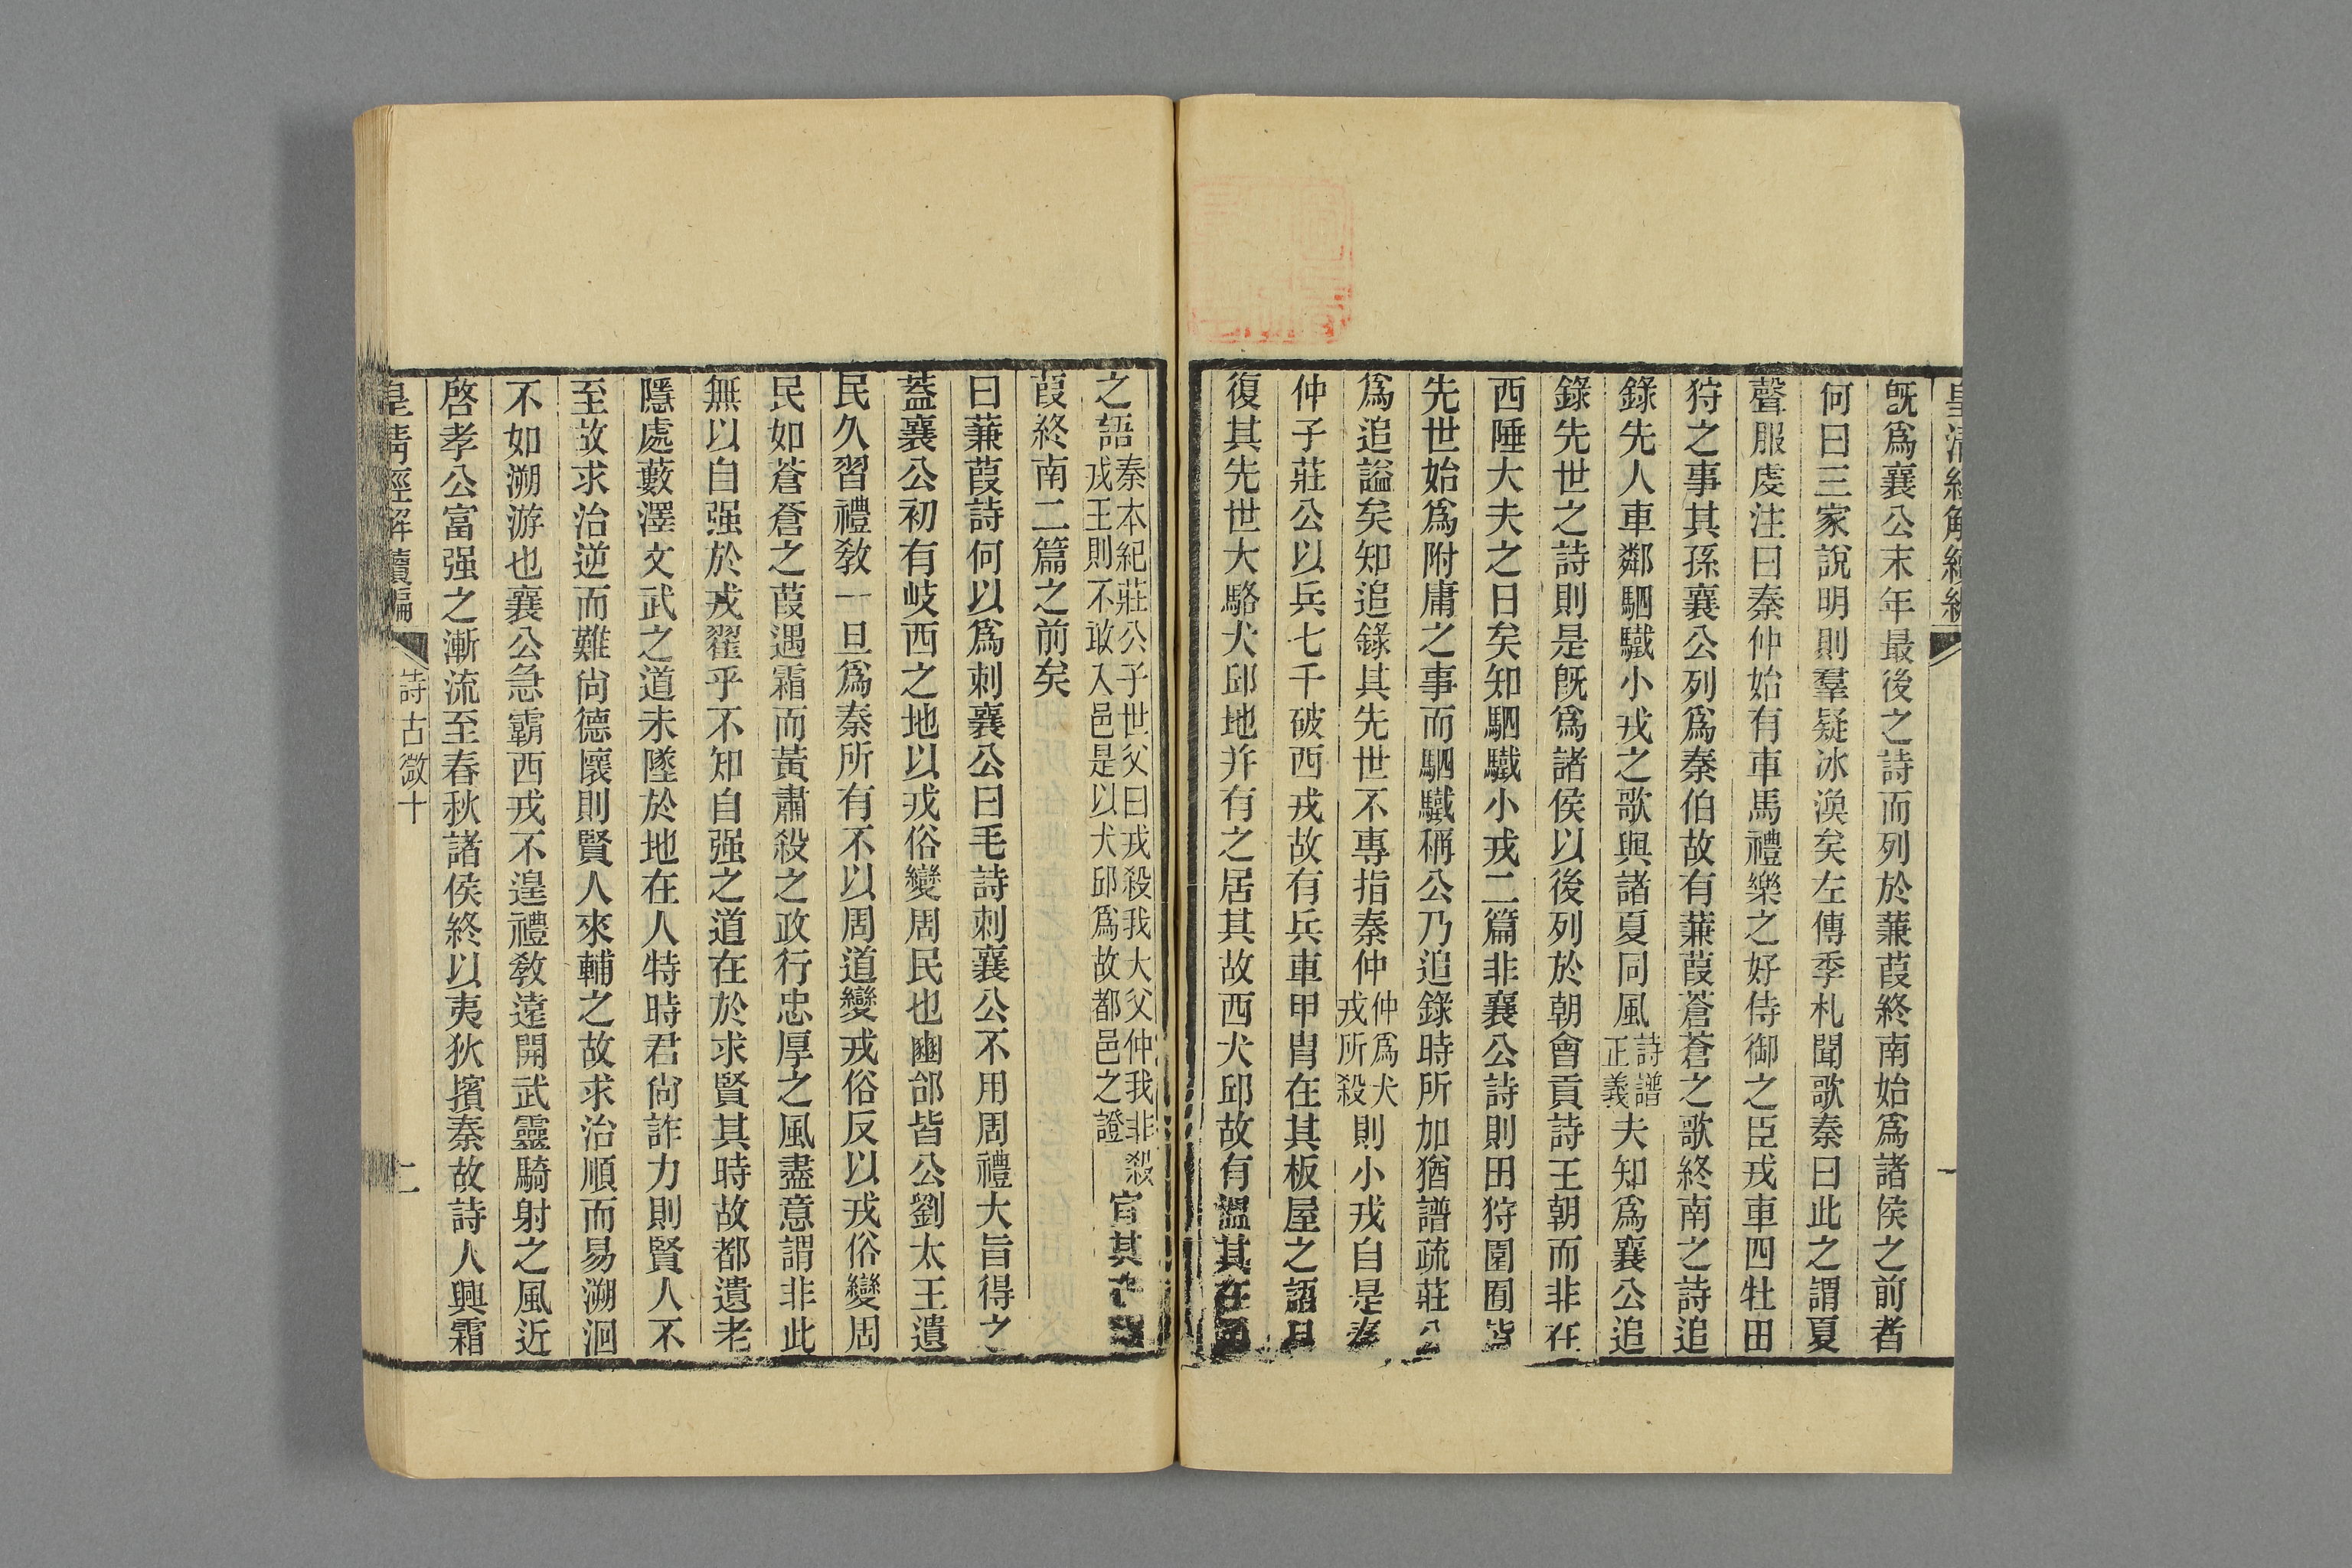 皇清經解續編
一
旣爲襄公末年最後之詩而列於蒹葭終南始爲諸侯之前者
何曰三家說明則羣疑冰渙矣左傳季札聞歌秦曰此之謂夏
聲服虔注曰秦仲始有車馬禮樂之好侍御之臣戎車四牡田
狩之事其孫襄公列爲秦伯故有蒹葭蒼蒼之歌終南之詩追
錄先人車鄰駟驖小戎之歌與諸夏同風詩譜正義夫知爲襄公追
錄先世之詩則是旣爲諸侯以後列於朝會貢詩王朝而非在
西陲大夫之日矣知駟驖小戎二篇非襄公詩則田狩園囿皆
先世始爲附庸之事而駟驖稱公乃追錄時所加猶譜疏莊公
爲追謚矣知追錄其先世不專指秦仲仲爲犬戎所殺則小戎自是秦
仲子莊公以兵七千破西戎故有兵車甲胄在其板屋之語且
復其先世大駱犬邱地并有之居其故西犬邱故有溫其在邑
之語秦本紀莊公子世父曰戎殺我大父仲我非殺戎王則不敢入邑是以犬邱爲故都邑之證宜其在蒹
葭終南二篇之前矣
曰蒹葭詩何以爲刺襄公曰毛詩刺襄公不用周禮大旨得之
蓋襄公初有岐西之地以戎俗變周民也豳邰皆公劉太王遺
民久習禮敎一旦爲秦所有不以周道變戎俗反以戎俗變周
民如蒼蒼之葭遇霜而黃肅殺之政行忠厚之風盡意謂非此
無以自强於戎翟乎不知自强之道在於求賢其時故都遺老
隱處藪澤文武之道未墜於地在人特時君尙詐力則賢人不
至故求治逆而難尙德懷則賢人來輔之故求治順而易溯洄
不如溯游也襄公急霸西戎不遑禮敎遠開武靈騎射之風近
啓孝公富强之漸流至春秋諸侯終以夷狄擯秦故詩人興霜
皇淸經解續編
詩古微十
二